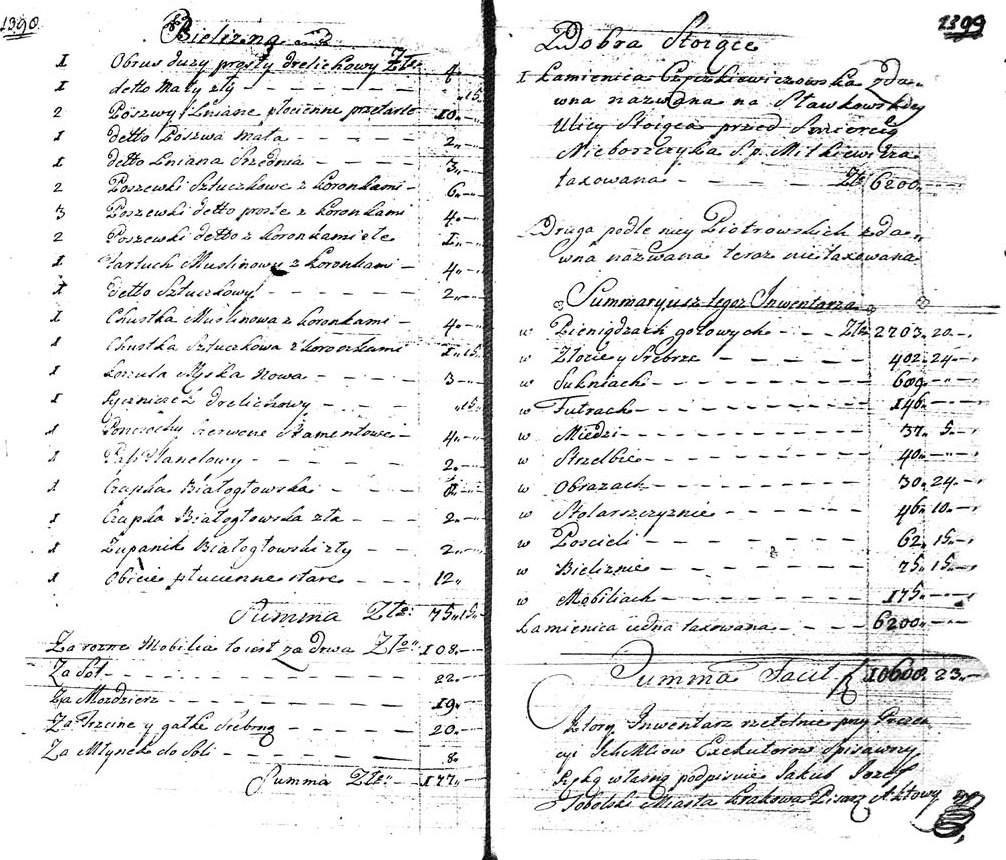 1390
Bielizna
1 Obrus duzy prosty drelichowy Złł: 4 „ —
1 detto Mały zły — — „ 15
2 Poszwy Lniane płocienne przetarte 10 „ —
1 detto Poszwa mała — — 2 „ —
1 detto Lniana Srzednia — — 3 „
2 Poszewki Sztuczkowe z koronkami — 6 „ —
3 Poszewki detto proste z koronkami 4 „ —
2 Poszewki detto z koronkami złe 1 „ —
1 Fartuch Muslinowy z koronkami — 4 „ —
1 detto Sztuczkowy — — 2 „ —
1 Chustka Muslinowa z koronkami — 4 „ —
1 Chustka Sztuczkowa z koronkami 1 „ 15
1 koszula Męska Nowa — — 3 —
1 drelichowy — — „ 15
1 Ponczochy czerwone — 4 „ —
1 Flanelowy — — 2 „ —
1 Czapka Białogłowska — — 8 „ —
1 Czapka Białogłowska zła — — 2 „ —
1 Zupanik Białogłowski zły — — 2 „ —
1 Obicie płucienne stare — — 12 „
Summa Złł: 75 „ 15
Za rozne Mobilia to iest za drwa Złł 108 „ —
Za Sol — — 22 „ —
Za Mozdzierz — — 19 „
Za Trzcine y gałke Srebrną — — 20 „ —
Za Młynek do Soli — — 8 „
Summa Złł — 177 „
1399
Dobra Stoiące
1 kamienica Czyrzkiewiczowska zda„
wna nazwana na Sławkowskiy
Ulicy Stoiąca przed Smiercią
Nieborzczyka S. p. Mitkiewicza
taxowana — — Złł 6200 „ —
Druga podle niey Piotrowskich zda„
wna nazwana teraz nietaxowana
Summaryusz tegoż Inwentarza
w Pieniądzach gotowych — — Złł 2703 „ 20 —
w Złocie y Srebrze — — 402 „ 24 —
w Sukniach — — 609 „ —
w Futrach — — 146 „ —
w Miedzi — — 37 „ 5 „ —
w Strzelbie — — 40 „ —
w Obrazach — — 30 „ 24 —
w Stolarszczyznie — — 46 „ 10 „ —
w Poscieli — — 62 „ 15 „ —
w Bieliznie — — 75 „ 15 „ —
w Mobiliach — — 175 „ —
kamienica iedna taxowana — — 6200 „ —
Summa Facit f 10608 „ 23 „ —
Ktory Inwentarz rzetelnie przy
Exekutorow Spisawszy
Ręką własną podpisuie Jakub Jozef
Sobolski Miasta krakowa Pisarz Aktowy